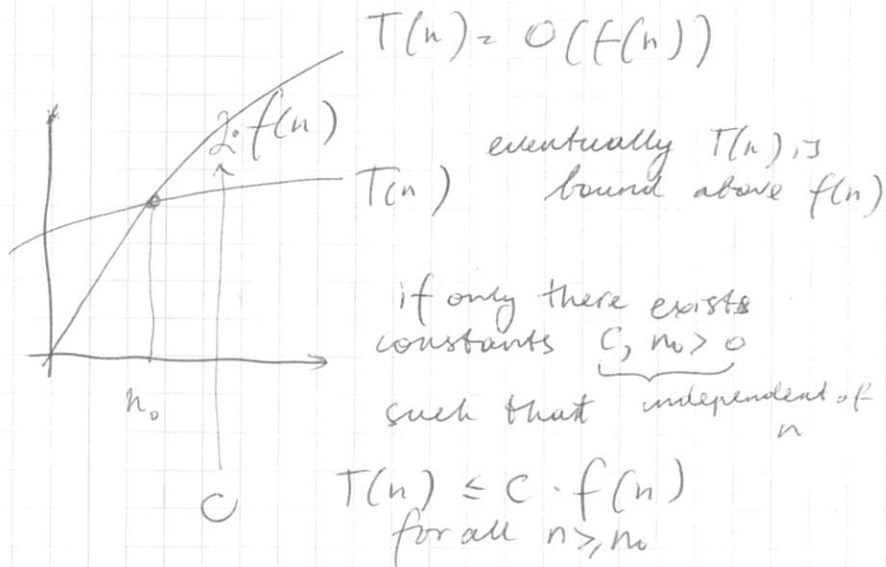 T(n) = O(f(n))
2·f(n)
eventually T(n) is
bound above f(n)
T(n)
if only there exists
constants C, n₀ > 0
independent of
n
such that
n₀
C
T(n) ≤ C · f(n)
for all n ≥ n₀